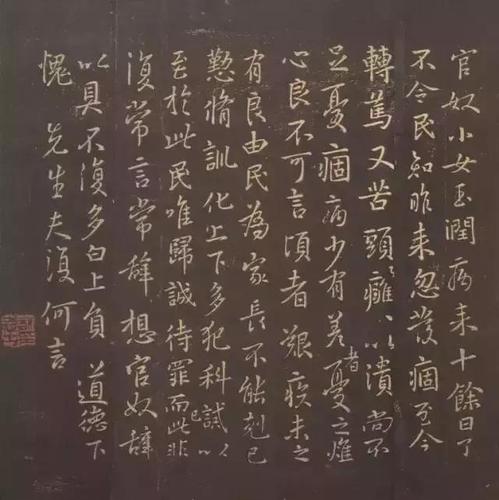 官奴小女玉潤病来十餘日了
不令民知昨来忽發痼至今
轉篤又苦頭〻癰〻以潰尚不
足憂痼病少有差者憂之燋
心良不可言頃者艱疾未之
有良由民為家長不能剋己
懃脩訓化上下多犯科誡以
至於此民唯歸誠待罪而已此非
復常言常辭想官奴辭
以具不復多白上負 道德下
愧 先生夫復何言